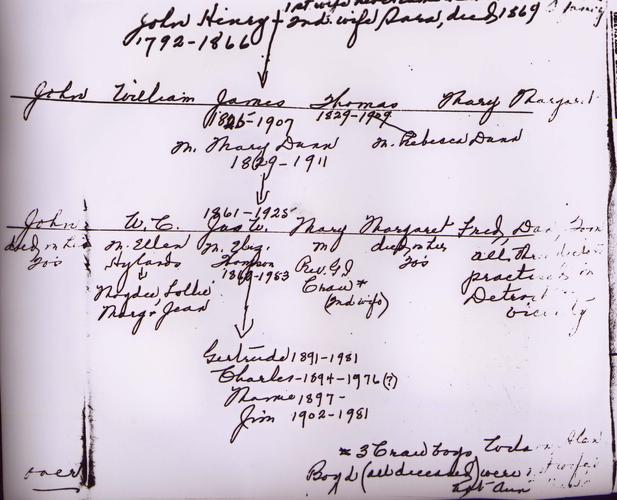 1st wife
John Henry - 2nd. wife Sara, died 1869
1792-1866
family
John William James Thomas Mary Margaret
1826-1907 1829-1909
m. Mary Dunn m. Rebecca Dunn
1829-1911
1861-1925
John W. C. Jas W. Mary Margaret Fred, Dan, Tom
died in his m. Ellen m. Eliz. m died in her all, three
20's Hylands Thompson Rev. G.J. 20's practised in
1860-1953 Craw* Detroit
Lollie (2nd wife) vicinity
Marg. Jean
Gertrude 1891-1981
Charles - 1894-1976(?)
Mamie 1897-
Jim 1902-1981
* 3 Craw boys,
Boyd (all deceased) were
over